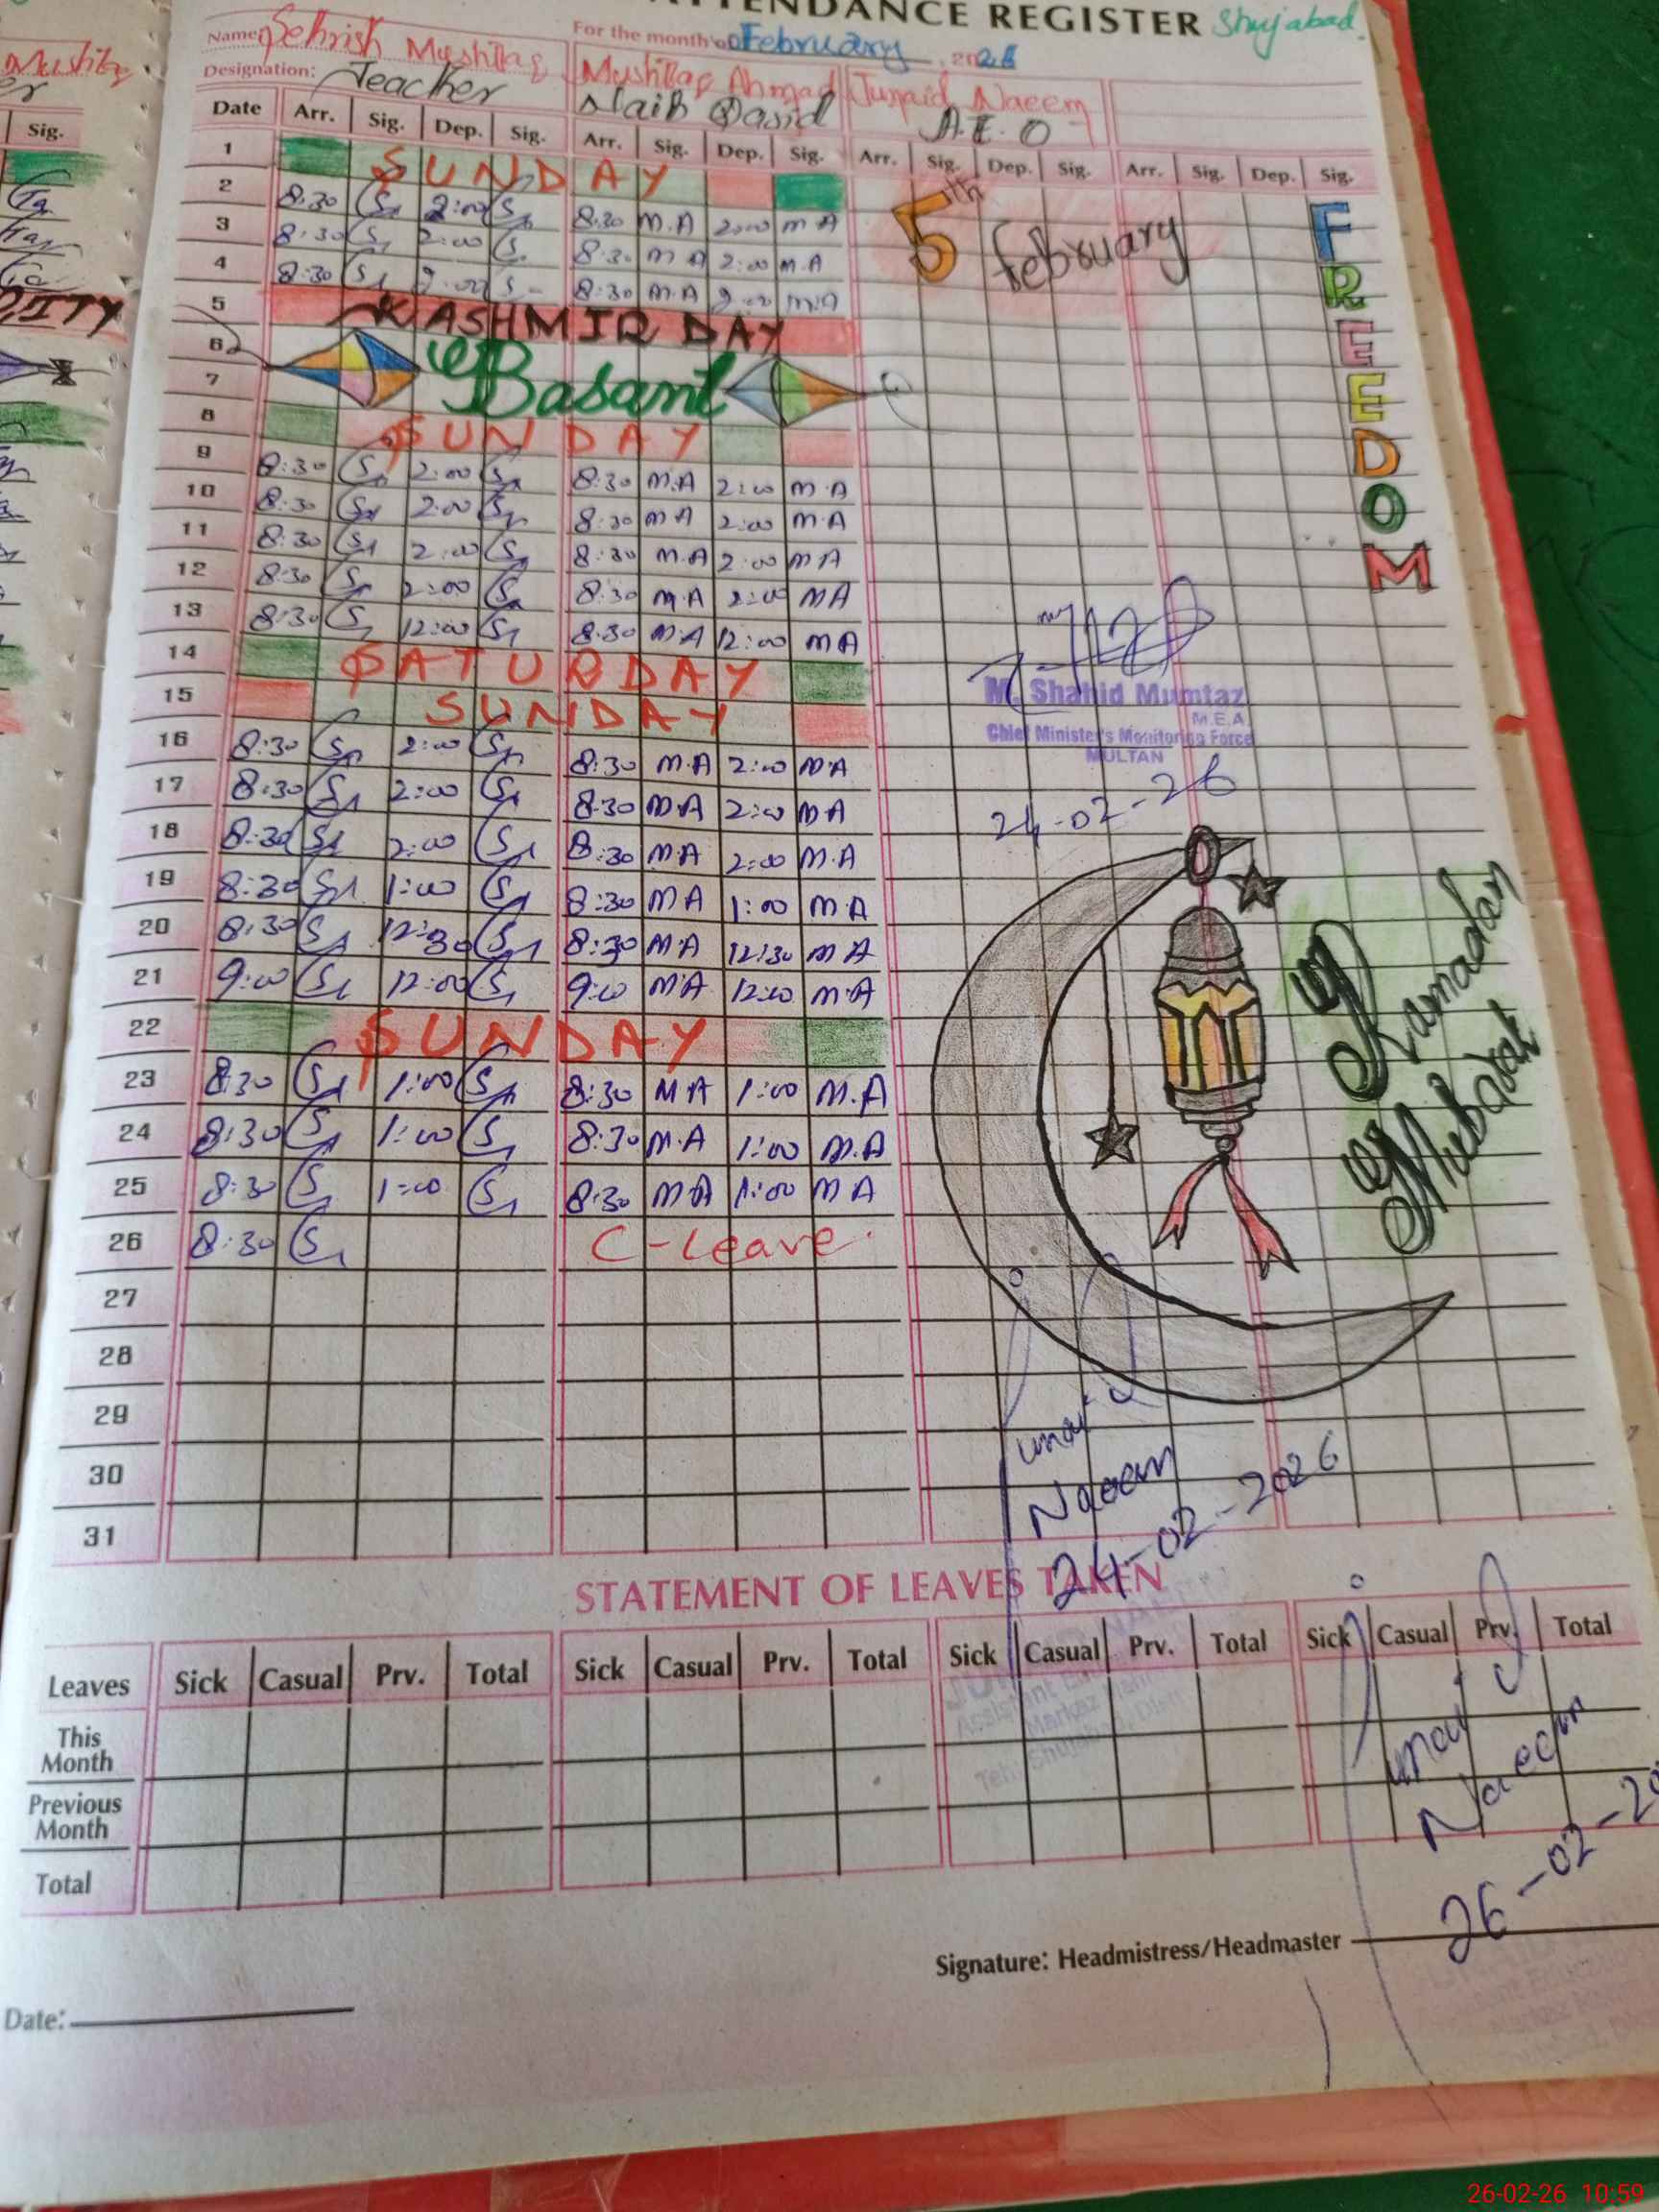 ATTENDANCE REGISTER Shujabad.
Name: Sehrish Mushtaq For the month of February, 2026
Designation: Teacher Mushtaq Ahmad Junaid Naeem
Naib Qasid A.E.O
Date Arr. Sig. Dep. Sig. Arr. Sig. Dep. Sig. Arr. Sig. Dep. Sig. Arr. Sig. Dep. Sig.
1 SUNDAY
2 8:30 2:00 8:30 M.A 2:00 M.A
3 8:30 2:00 8:30 M.A 2:00 M.A
4 8:30 2:00 8:30 M.A 2:00 M.A
5th February
FREEDOM
5 KASHMIR DAY
6
7 Basant
8 SUNDAY
9 8:30 2:00 8:30 M.A 2:00 M.A
10 8:30 2:00 8:30 M.A 2:00 M.A
11 8:30 2:00 8:30 M.A 2:00 M.A
12 8:30 2:00 8:30 M.A 2:00 M.A
13 8:30 12:00 8:30 M.A 12:00 M.A
14 SATURDAY
15 SUNDAY
M. Shahid Mumtaz
M.E.A.
Chief Minister's Monitoring Force
MULTAN
24-02-26
16 8:30 2:00 8:30 M.A 2:00 M.A
17 8:30 2:00 8:30 M.A 2:00 M.A
18 8:30 2:00 8:30 M.A 2:00 M.A
19 8:30 1:00 8:30 M.A 1:00 M.A
20 8:30 12:30 8:30 M.A 12:30 M.A
21 9:00 12:00 9:00 M.A 12:00 M.A
22 SUNDAY
Ramadan
Mubarak
23 8:30 1:00 8:30 M.A 1:00 M.A
24 8:30 1:00 8:30 M.A 1:00 M.A
25 8:30 1:00 8:30 M.A 1:00 M.A
26 8:30 C-Leave
27
28
29
30
31
Naeem
24-02-2026
STATEMENT OF LEAVES TAKEN
Leaves Sick Casual Prv. Total Sick Casual Prv. Total Sick Casual Prv. Total Sick Casual Prv. Total
This Month
Previous Month
Total
Naeem
26-02-20
Signature: Headmistress/Headmaster
Date:
26-02-26 10:59